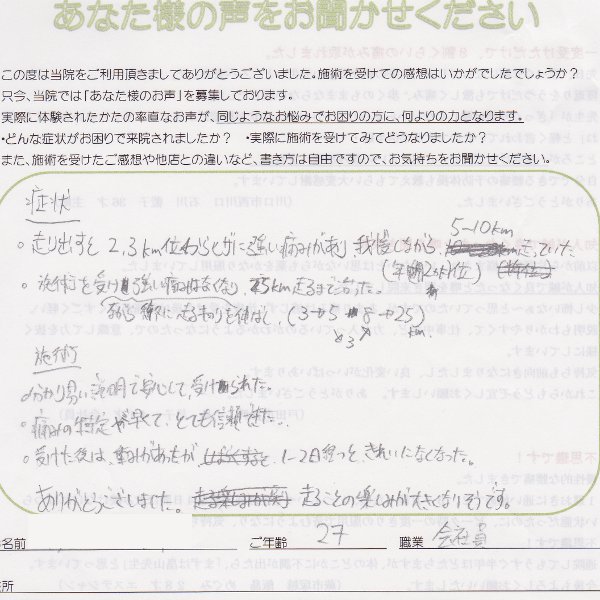 あなた様の声をお聞かせください
この度は当院をご利用頂きましてありがとうございました。施術を受けての感想はいかがでしたでしょうか?
只今、当院では「あなた様のお声」を募集しております。
実際に体験されたかたの率直なお声が、同じようなお悩みでお困りの方に、何よりの力となります。
・どんな症状がお困りで来院されましたか? ・実際に施術を受けてみてどうなりましたか?
また、施術を受けたご感想や他店との違いなど、書き方は自由ですので、お気持ちをお聞かせください。
症状
5-10km
○走り出すと2,3km位から強い痛みがあり、我慢しながら走っていた
(年齢2ヶ月位)
○施術を受け強い痛みはなくなり、25km走るまで治った。
(3→5→8→25)
×3 km
施術
○分かり易い説明で安心して受けられた。
○痛みの特定が早くて、とても信頼できた。
○受けた後は、重みがあったが 1-2日経つときれいになくなった。
ありがとうございました。 走ることの楽しみが大きくなりそうです。
名前 ご年齢 27 職業 会社員
所